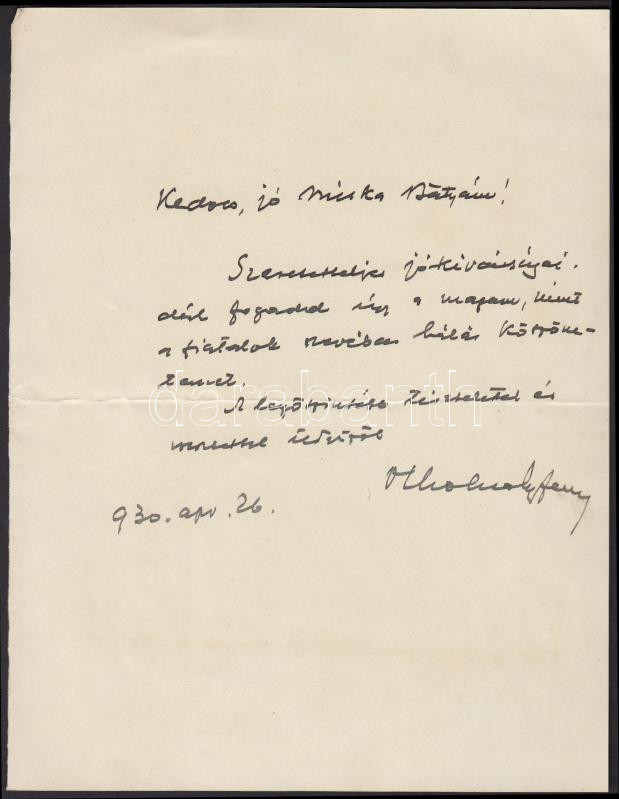 Kedves, jó Miska Bátyám!
Szeretetteljes jókívánságai-
dért fogadd úgy a magam, mint
a fiatalok nevében hálás köszöne-
temet.
A legőszintébb tisztelettel és
szeretettel üdvözöl
930. apr. 26.
darabanth